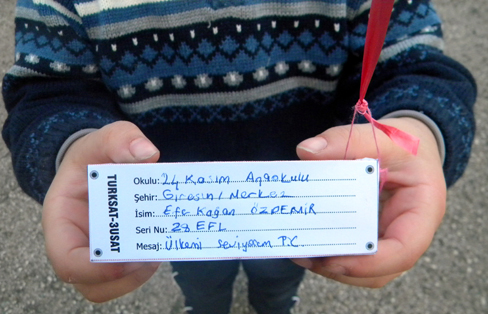 TURKSAT-3USAT
Okulu: 24 Kasım Anaokulu
Şehir: Giresun/Merkez
İsim: Efe Kağan ÖZDEMİR
Seri Nu: 28 EFL
Mesaj: Ülkemi seviyorum T.C.